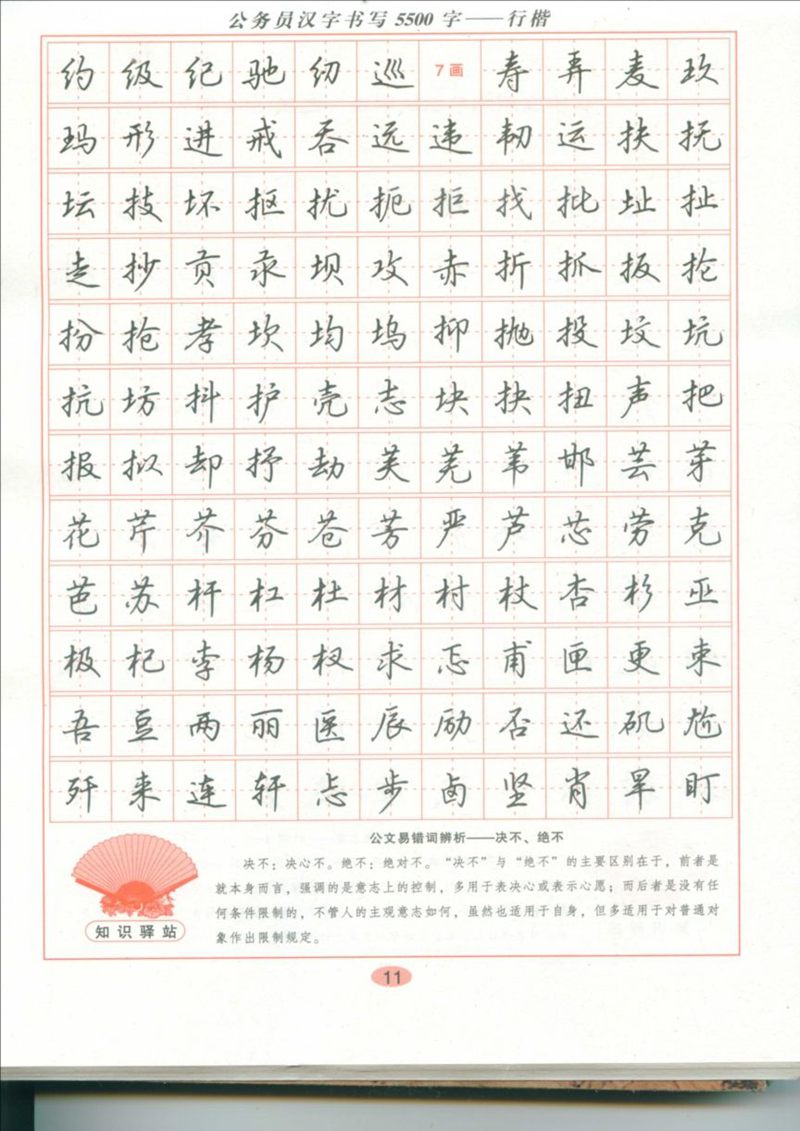 公务员汉字书写5500字——行楷
约 级 纪 驰 纫 巡 7画 寿 弄 麦 玖
玛 形 进 戒 吞 远 违 韧 运 扶 抚
坛 技 坏 抠 扰 扼 拒 找 批 址 扯
走 抄 贡 汞 坝 攻 赤 折 抓 扳 抡
扮 抢 孝 坎 均 坞 抑 抛 投 坟 坑
抗 坊 抖 护 壳 志 块 抉 扭 声 把
报 拟 却 抒 劫 芙 芜 苇 邯 芸 芽
花 芹 芥 芬 苍 芳 严 芦 芯 劳 克
芭 苏 杆 杠 杜 材 村 杖 杏 杉 巫
极 杞 李 杨 杈 求 忑 甫 匣 更 束
吾 豆 两 丽 医 辰 励 否 还 矶 尬
歼 来 连 轩 忐 步 卤 坚 肖 旱 盯
公文易错词辨析——决不、绝不
决不:决心不。绝不:绝对不。“决不”与“绝不”的主要区别在于,前者是
就本身而言,强调的是意志上的控制,多用于表决心或表示心愿;而后者是没有任
何条件限制的,不管人的主观意志如何,虽然也适用于自身,但多适用于对普通对
象作出限制规定。
知识驿站
11